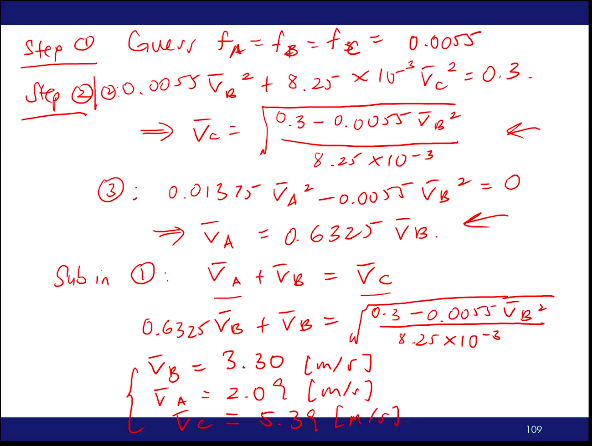 Step ① Guess f_A = f_B = f_C = 0.0055
Step ② | ②: 0.0055 V̄_B² + 8.25 × 10⁻³ V̄_C² = 0.3.
⇒ V̄_C = √((0.3 − 0.0055 V̄_B²) / (8.25 × 10⁻³)) ←
③: 0.01375 V̄_A² − 0.0055 V̄_B² = 0
⇒ V̄_A = 0.6325 V̄_B. ←
Sub in ①: V̄_A + V̄_B = V̄_C
0.6325 V̄_B + V̄_B = √((0.3 − 0.0055 V̄_B²) / (8.25 × 10⁻³))
{ V̄_B = 3.30 [m/s]
V̄_A = 2.09 [m/s]
V̄_C = 5.39 [m/s].
109